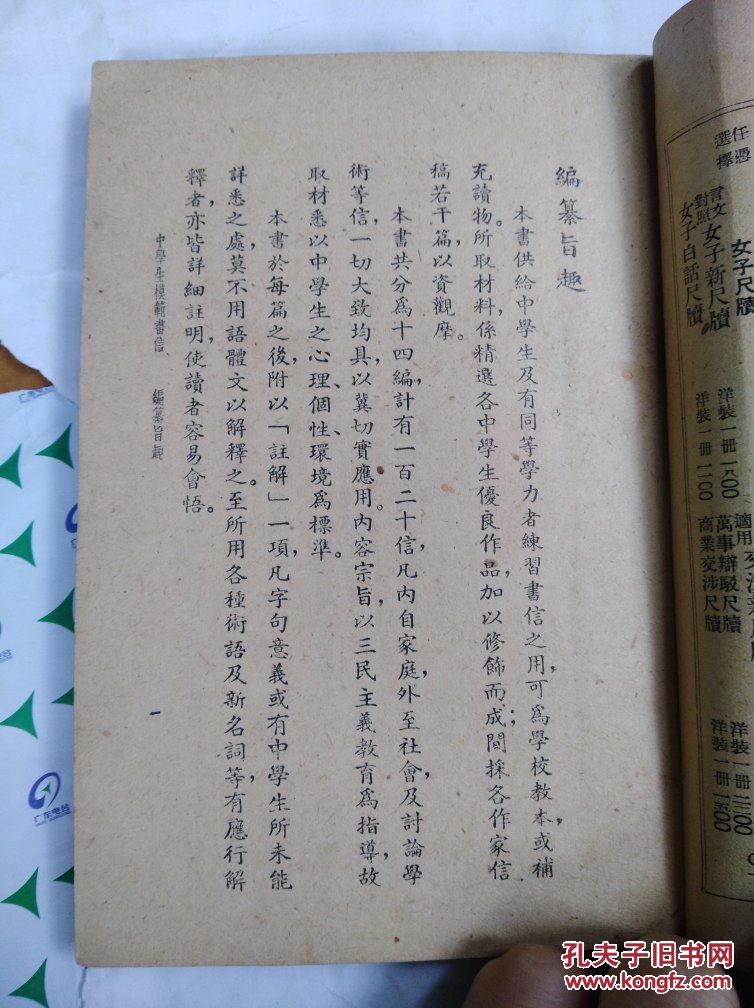 編纂旨趣
本書供給中學生及有同等學力者練習書信之用，可為學校教本，或補
充讀物。所取材料，係精選各中學生優良作品，加以修飾而成；間採各作家信
稿若干篇，以資觀摩。
本書共分為十四編，計有一百二十信，凡內自家庭，外至社會，及討論學
術等信，一切大致均具，以冀切實應用。內容宗旨，以三民主義教育為指導，故
取材悉以中學生之心理、個性、環境為標準。
本書於每篇之後，附以「註解」一項，凡字句意義或有中學生所未能
詳悉之處，莫不用語體文以解釋之。至所用各種術語及新名詞等，有應行解
釋者，亦皆詳細註明，使讀者容易會悟。
中學生模範書信 編纂旨趣
一
任憑
選擇
女子尺牘
言文對照 女子新尺牘 洋裝一冊
女子白話尺牘 洋裝一冊
適用
萬事辯駁尺牘 洋裝一冊
商業交涉尺牘 洋裝一冊
广东电台
孔夫子旧书网
www.kongfz.com